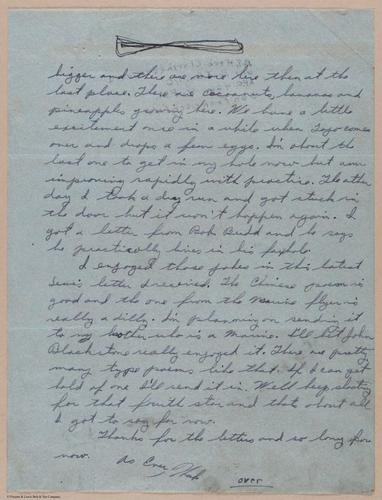 bigger and there are more here then at the
last place. There are coconuts, bananas and
pineapples growing here. We have a little
excitement once in a while when Tojo comes
over and drops a few eggs. I'm about the
last one to get in my hole now but am
improving rapidly with practice. The other
day I took a dog run and got stuck in
the door but it won't happen again. I
got a letter from Bob Budd and he says
he practically lives in his foxhole.
I enjoyed those jokes in this latest
letter I received. The Chinese poem is
good and the one from the Marine flyer is
really a dilly. I'm planning on sending it
to my brother who is a Marine. I'll bet John
Blackstone really enjoyed it. There are pretty
many type poems like that. If I can get
hold of one I'll send it in. We'll keep
for that fourth star and that about all
I got to say for now.
Thanks for the letters and so long for
now.
As Ever
over